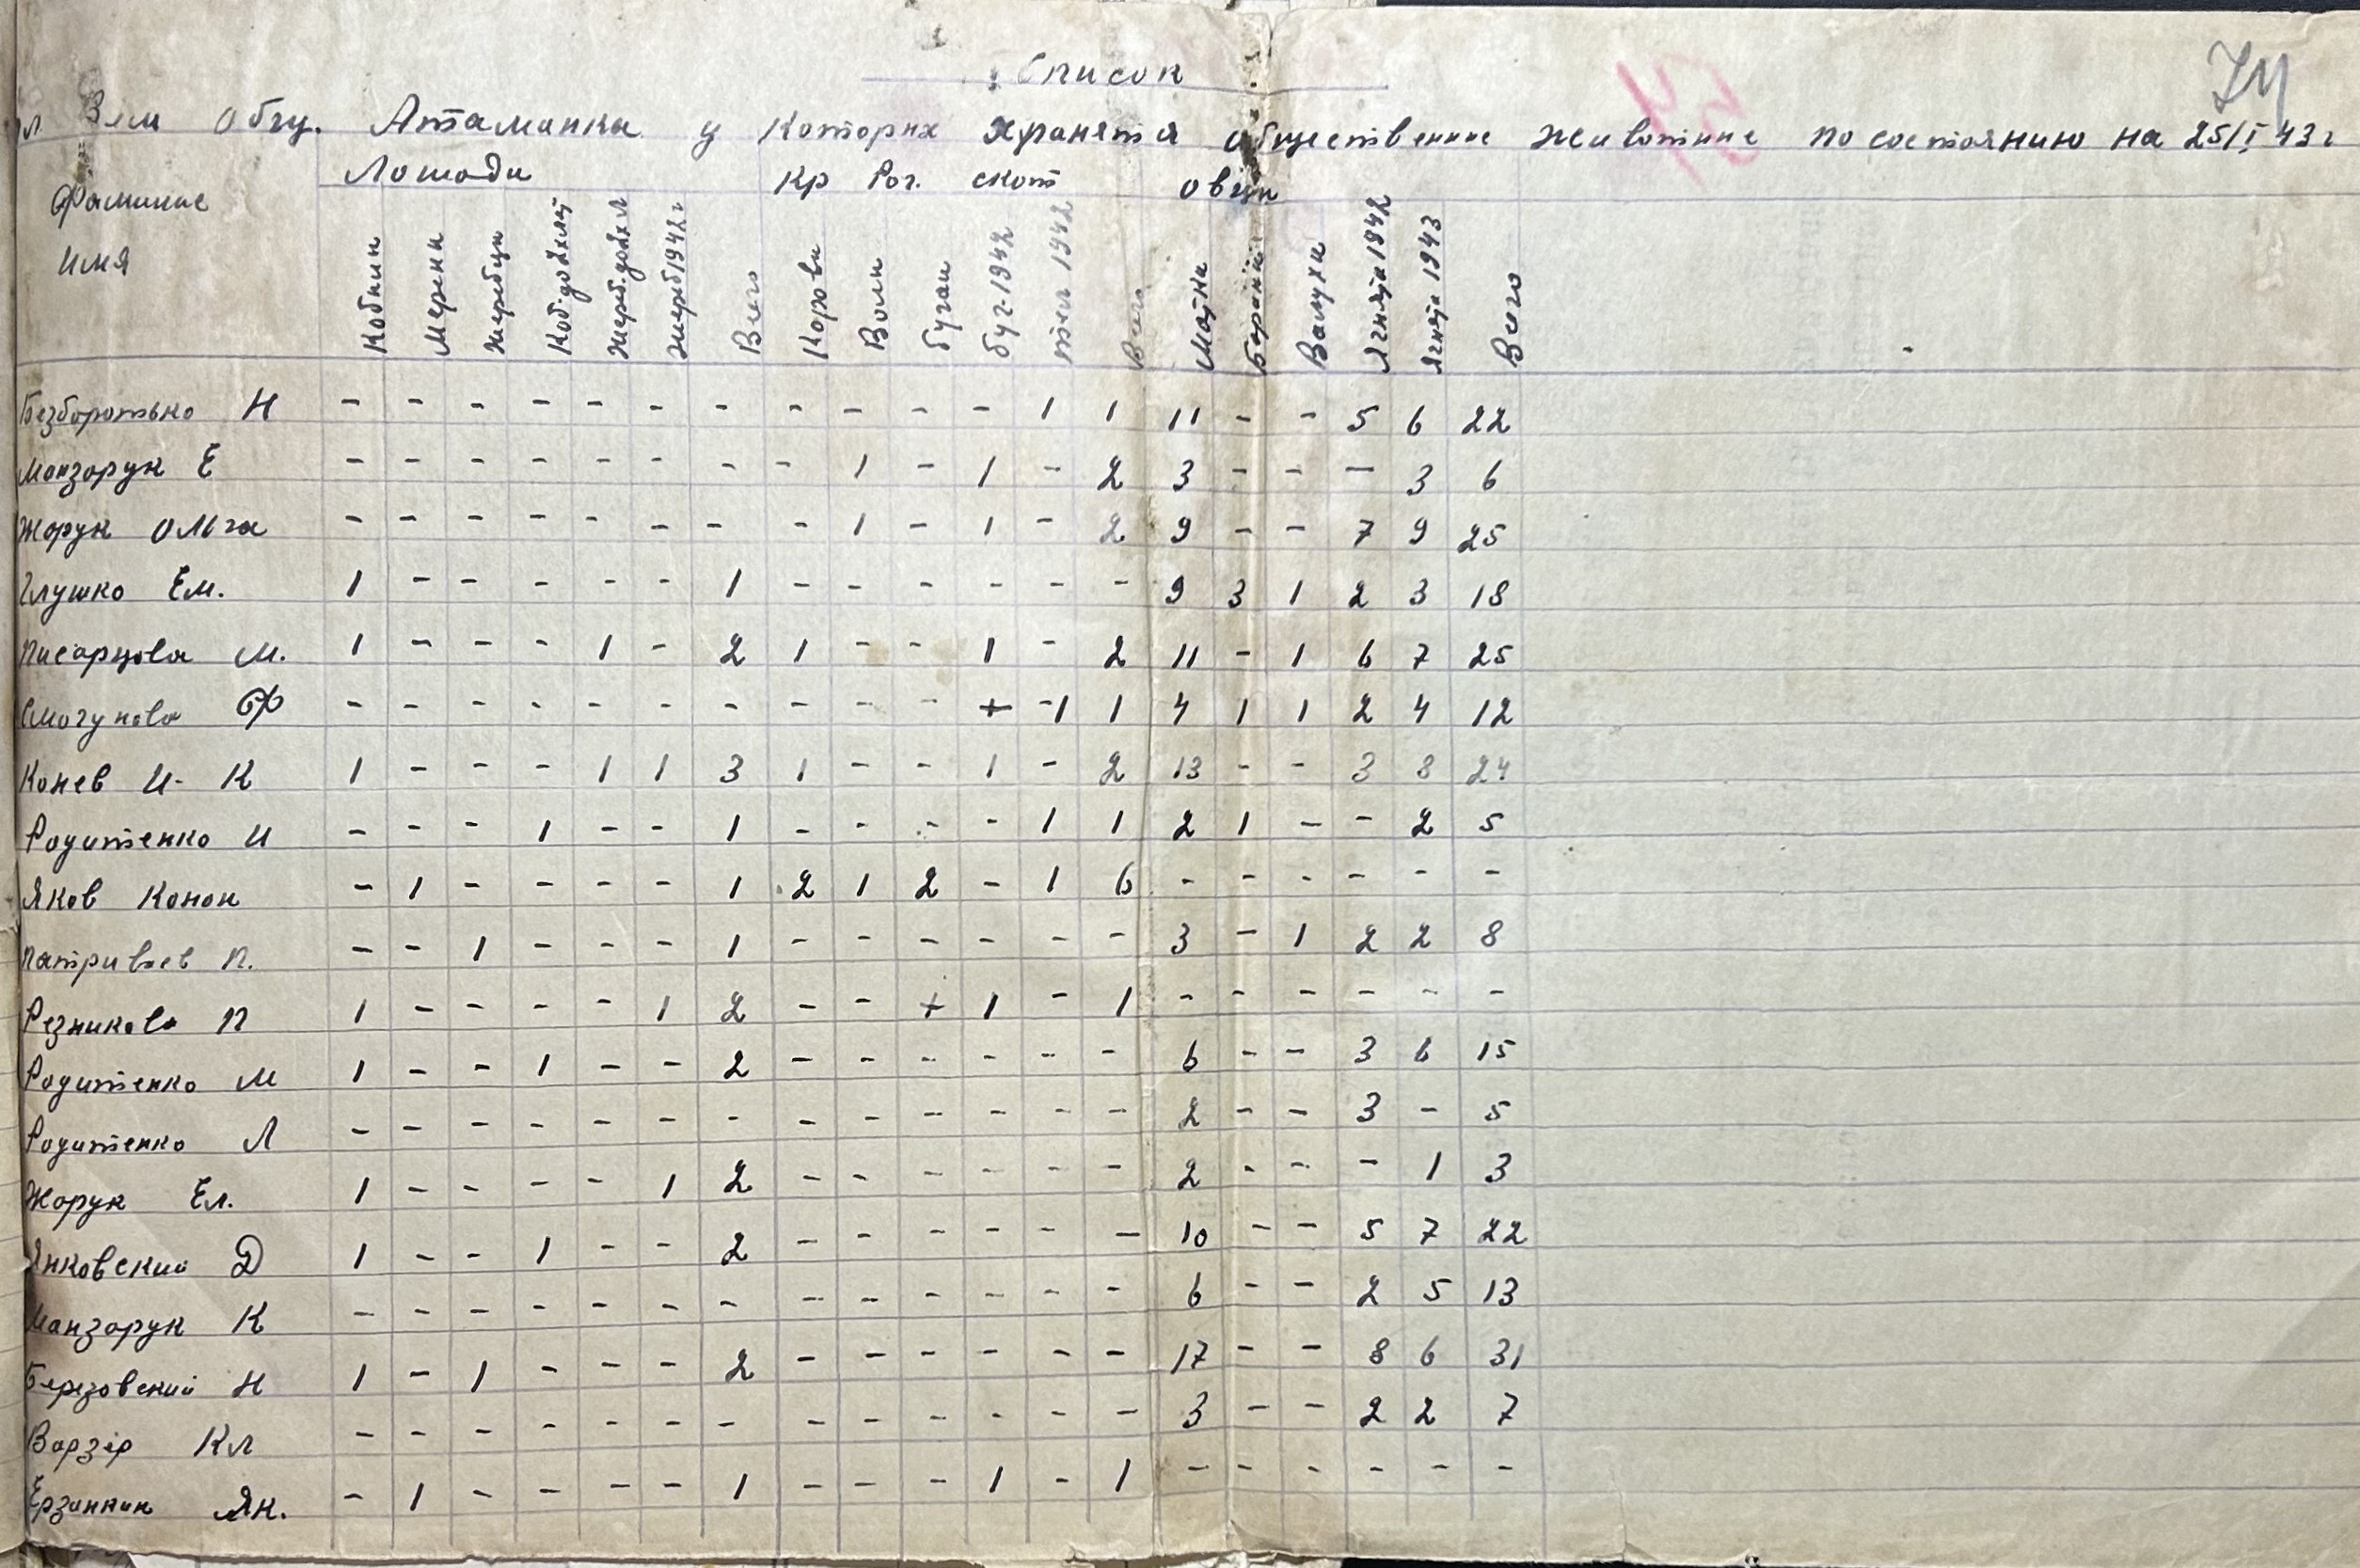 Список
74
Зем Общ. Атаманка у Которих храняться общественние животние по состоянию на 25/I 43 г
Фамилие Имя
Лошади Кр Рог. скот овци
Кобили Мерени Жеребци Коб. до 2х лет Жереб. до 2х л Жереб 1942 г Всего Корови Воли бугаи буг-1942 тел 1942 Всего Матки Барани Валухи Ягнята 1942 Ягнята 1943 Всего
Безборотько Н - - - - - - - - - - - 1 1 11 - - 5 6 22
Манзорук Е - - - - - - - - 1 - 1 - 2 3 - - - 3 6
Жорук Ольга - - - - - - - - 1 - 1 - 2 9 - - 7 9 25
Глушко Ем. 1 - - - - - 1 - - - - - - 9 3 1 2 3 18
Писарцова М. 1 - - - 1 - 2 1 - - 1 - 2 11 - 1 6 7 25
Смогунова Ф - - - - - - - - - - + -1 1 4 1 1 2 4 12
Конев И- К 1 - - - 1 1 3 1 - - 1 - 2 13 - - 3 8 24
Родитенко И - - - 1 - - 1 - - - - 1 1 2 1 - - 2 5
Яков Конон - 1 - - - - 1 2 1 2 - 1 6 - - - - - -
Патриваев П. - - 1 - - - 1 - - - - - - 3 - 1 2 2 8
Резникова П 1 - - - - 1 2 - - + 1 - 1 - - - - - -
Родитенко М 1 - - 1 - - 2 - - - - - - 6 - - 3 6 15
Родитенко Л - - - - - - - - - - - - - 2 - - 3 - 5
Жорук Ел. 1 - - - - 1 2 - - - - - - 2 - - - 1 3
Янковский Д 1 - - 1 - - 2 - - - - - - 10 - - 5 7 22
Манзорук К - - - - - - - - - - - - - 6 - - 2 5 13
Березовский Н 1 - 1 - - - 2 - - - - - - 17 - - 8 6 31
Варзер Кл - - - - - - - - - - - - - 3 - - 2 2 7
Ерзинкин Як. - 1 - - - - 1 - - - 1 - 1 - - - - - -